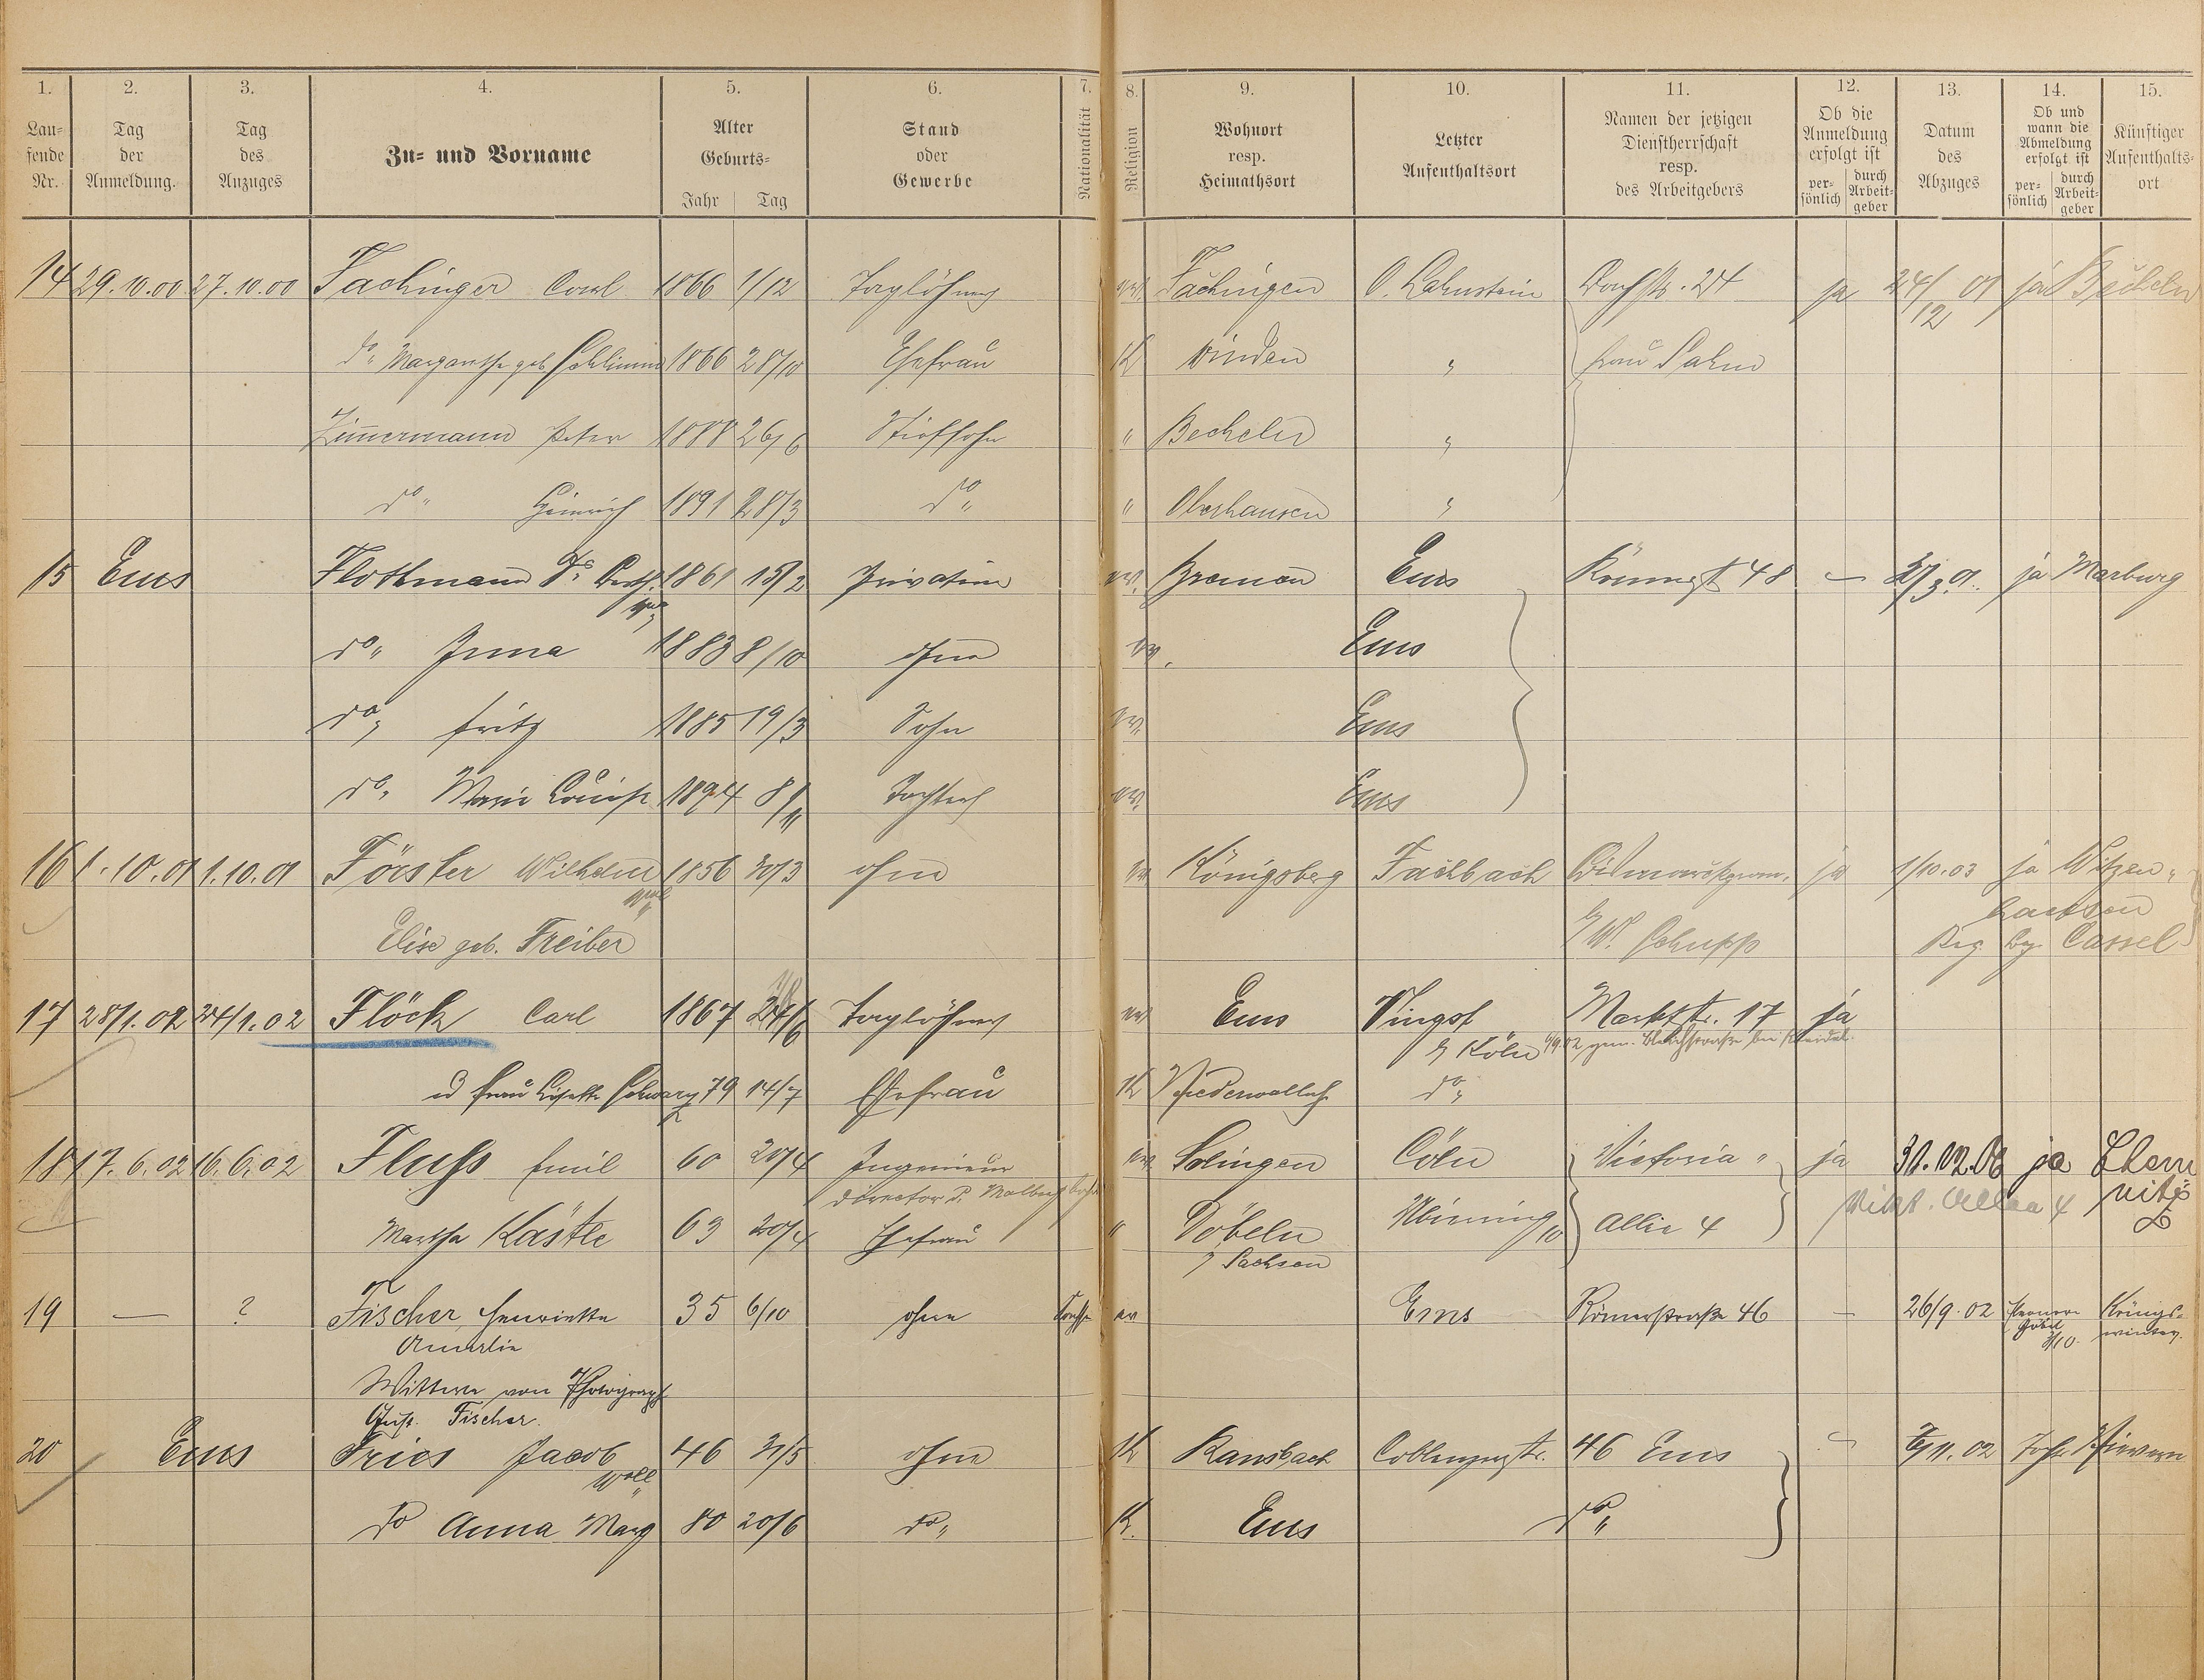 1. 2. 3. 4. 5. 6. 7. 8. 9. 10. 11. 12. 13. 14. 15.
Laufende Nr.
Tag der Anmeldung.
Tag des Anzuges
Zu- und Vorname
Alter Geburts- Jahr Tag
Stand oder Gewerbe
Nationalität
Religion
Wohnort resp. Heimathsort
Letzter Aufenthaltsort
Namen der jetzigen Dienstherrschaft resp. des Arbeitgebers
Ob die Anmeldung erfolgt ist persönlich durch Arbeitgeber
Datum des Abzuges
Ob und wann die Abmeldung erfolgt ist persönlich durch Arbeitgeber
Künftiger Aufenthaltsort
14 29.10.00 27.10.00 Fachinger Carl 1866 1/12 Taglöhner ev. Fachingen O. Lahnstein 24 ja 24/12 01 ja Becheln
do. Margarethe geb. 1866 28/10 Ehefrau K Winden " Frau
Zimmermann Peter 1888 26/6 Stiefsohn " Becheln "
do. Heinrich 1891 28/3 do. " Oberhausen "
15 Ems Flothmann 1861 15/2 Privatier ev. Bremen Ems Römerst 48 — 3. 01. ja Marburg
do. 1883 8/10 ohne ev. Ems
do. Fritz 1885 19/3 Sohn ev. Ems
do. Marie Louise 1894 8/11 Tochter ev. Ems
16 1.10.01 1.10.01 Förster Wilhelm 1856 30/3 ohne ev Königsberg Fachbach ja 1/10.03 ja Witzen-
Elise geb. Treiber b/ W. Schupp Reg. Bez. Cassel
17 28/1.02 24/1.02 Flöck Carl 1867 Taglöhner ev Ems Vingst Marktstr. 17 ja
b/ Köln
u Frau Lisette Schwarz 79 14/7 Ehefrau K Niederwalluf do.
18 17.6.02 16.6.02 Fluss Emil 60 20/4 Ingenieur ev. Solingen Cöln Victoria- ja 31.12.06 ja Chem
Director d. nitz
Martha Kästle 63 20/4 Ehefrau " Döbeln Allee 4
/ Sachsen
19 — ? Fischer, Henriette 35 6/10 ohne ev Ems Römerstraße 46 — 26/9.02 Königs-
Amalie winter.
Wittwe von Photograph
Aug. Fischer.
20 Ems Fries Jacob 46 31/5 ohne K Ransbach Coblenzerstr. 46 Ems 11.02 Nievern
do Anna Marg 80 20/6 do. K. Ems do.